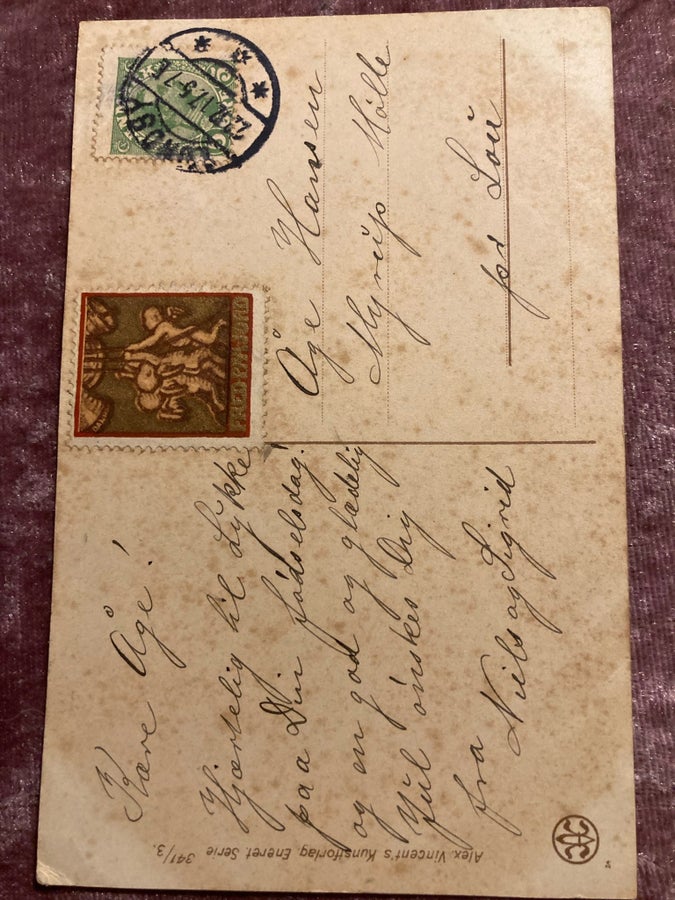 Kære Åge!
Hjærtelig til Lykke
paa Din fødselsdag!
og en god og glædelig
Jul ønskes Dig
fra Niels og Sigrid
Åge Hansen
Myrup Mølle
pr Lou
Alex. Vincent's Kunstforlag, Eneret. Serie 341/3.